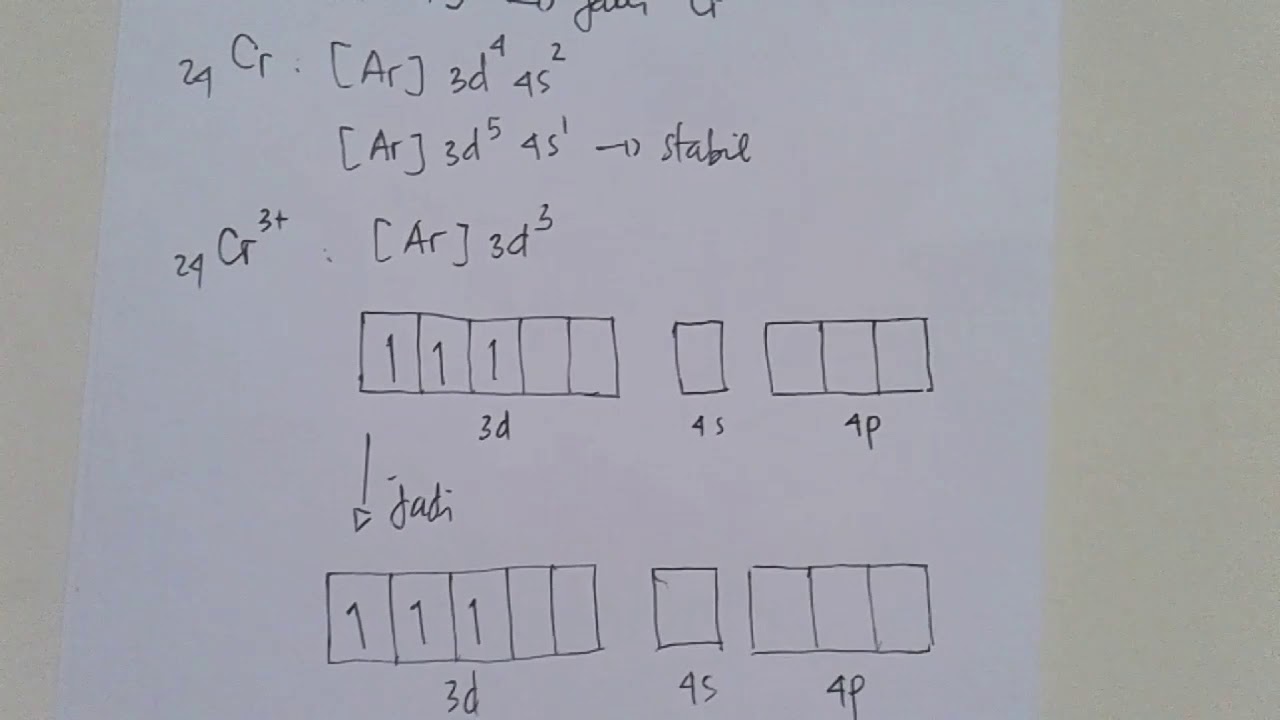 jadi Cr
₂₄Cr : [Ar] 3d⁴ 4s²
[Ar] 3d⁵ 4s¹ → stabil
₂₄Cr³⁺ : [Ar] 3d³
1 1 1
3d 4s 4p
↓ jadi
1 1 1
3d 4s 4p